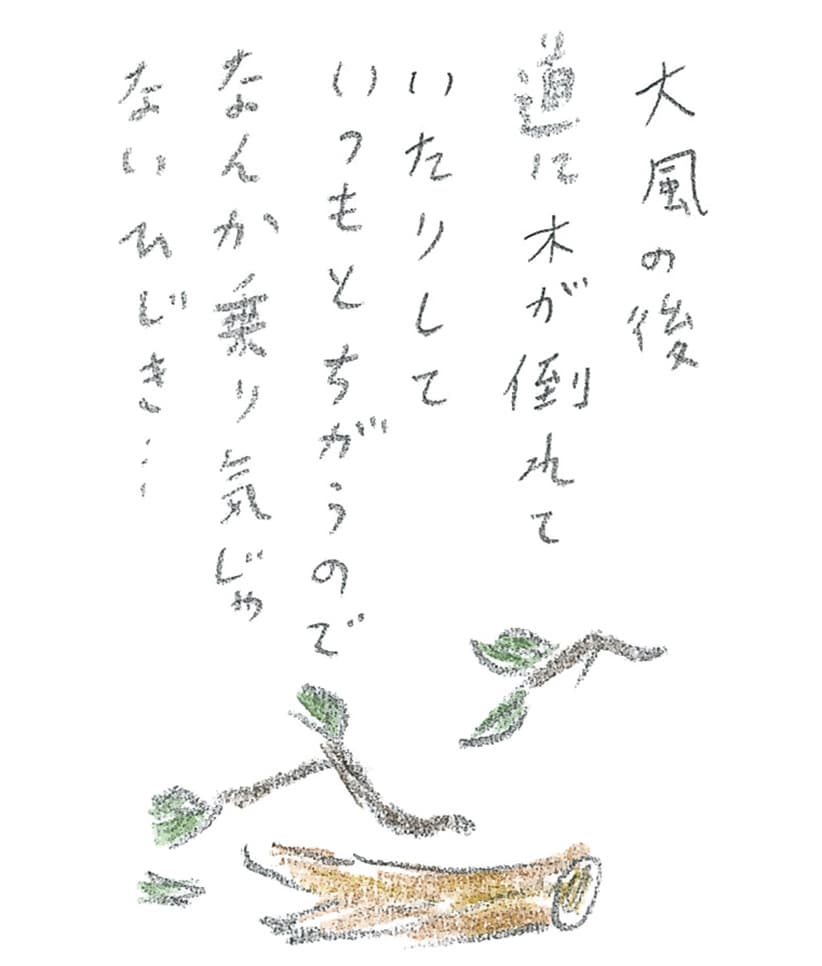 大風の後
道に木が倒れて
いたりして
いつもとちがうので
なんか乗り気じゃ
ないひじき…